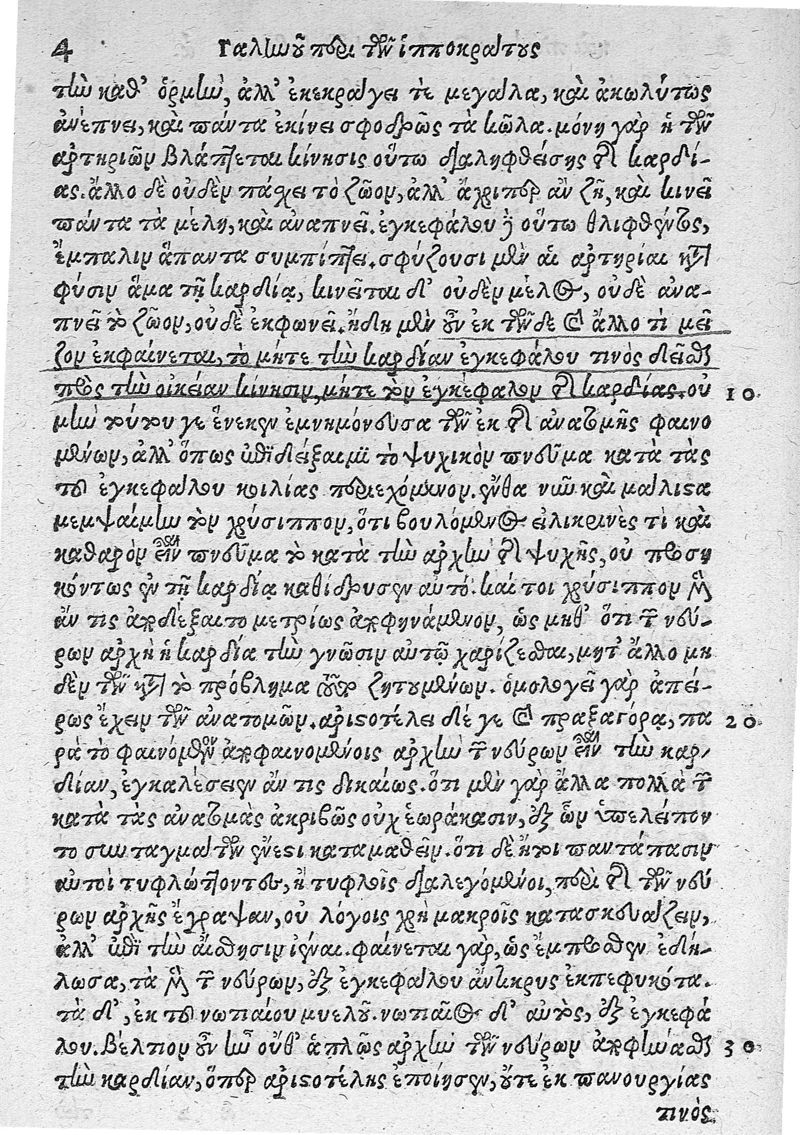 4 Γαλωοῦ περὶ τῶν ἱπποκράτους
τὼ καθ' ὁρμὼ, ἀλλ' ἐκεκράγει τὲ μεγάλα, καὶ ἀκωλύτως
ἀνέπνει, καὶ πάντα ἐκίνει σφοδρῶς τὰ κῶλα. μόνη γὰρ ἡ τῶν
ἀρτηριῶν βλάπτεται κίνησις οὕτω διαληφθείσης τῆς καρδί-
ας. ἄλλο δὲ οὐδὲν πάχει τὸ ζῶον, ἀλλ' ἄχριπερ ἂν ζῇ, καὶ κινεῖ
πάντα τὰ μέλη, καὶ ἀναπνεῖ. ἐγκεφάλου δὲ οὕτω θλιφθέντος,
ἔμπαλιν ἅπαντα συμπίπτει. σφύζουσι μὲν αἱ ἀρτηρίαι κατὰ
φύσιν ἅμα τῇ καρδίᾳ, κινεῖται δ' οὐδὲν μέλος, οὐδὲ ἀνα-
πνεῖ τὸ ζῶον, οὐδὲ ἐκφωνεῖ. ἤδη μὲν οὖν ἐκ τῶν δε καὶ ἄλλο τὶ μεῖ
ζον ἐκφαίνεται, τὸ μήτε τὼ καρδίαν ἐγκεφάλου τινὸς δεῖσθαι
πρὸς τὼ οἰκείαν κίνησιν, μήτε τὸν ἐγκέφαλον τῆς καρδίας. οὐ 10
μὼ τούτου γε ἕνεκεν ἐμνημόνευσα τῶν ἐκ τῆς ἀνατομῆς φαινο
μένων, ἀλλ' ὅπως ἐπιδείξαιμι τὸ ψυχικὸν πνεῦμα κατὰ τὰς
τοῦ ἐγκεφάλου κοιλίας περιεχόμενον. ἔνθα νῦν καὶ μάλιστα
μεμψαίμω τὸν χρύσιππον, ὅτι βουλόμενος εἰλικρινὲς τὶ καὶ
καθαρὸν εἶναι πνεῦμα τὸ κατὰ τὼ ἀρχὼ τῆς ψυχῆς, οὐ προση
κόντως ἐν τῇ καρδίᾳ καθίδρυσεν αὐτό. καί τοι χρύσιππον μὲν
ἄν τις ἀποδέξαιτο μετρίως ἀποφηνάμενον, ὡς μηθ' ὅτι τῶν νεύ-
ρων ἀρχὴ ἡ καρδία τὼ γνῶσιν αὐτῷ χαρίζεσθαι, μήτ' ἄλλο μη
δὲν τῶν κατὰ τὸ πρόβλημα τοῦτο ζητουμένων. ὁμολογεῖ γὰρ ἀπεί-
ρως ἔχειν τῶν ἀνατομῶν. ἀριστοτέλει δέ γε καὶ πραξαγόρᾳ, πα 20
ρὰ τὸ φαινόμενον ἀποφαινομένοις ἀρχὼ τῶν νεύρων εἶναι τὼ καρ-
δίαν, ἐγκαλέσειεν ἄν τις δικαίως. ὅτι μὲν γὰρ ἄλλα πολλὰ τῶν
κατὰ τὰς ἀνατομὰς ἀκριβῶς οὐχ ἑωράκασιν, ἐξ ὧν ὑπελείπον
το συνταγμάτων ἔνεστι καταμαθεῖν. ὅτι δὲ ἤτοι παντάπασιν
αὐτοὶ τυφλώττοντες, ἢ τυφλοῖς διαλεγόμενοι, περὶ τῆς τῶν νεύ
ρων ἀρχῆς ἔγραψαν, οὐ λόγοις χρὴ μακροῖς κατασκευάζειν,
ἀλλ' ἐπὶ τὼ αἴσθησιν ἰέναι. φαίνεται γὰρ, ὡς ἔμπροσθεν ἐδή-
λωσα, τὰ μὲν τῶν νεύρων, ἐξ ἐγκεφάλου ἄντικρυς ἐκπεφυκότα.
τὰ δ', ἐκ τοῦ νωτιαίου μυελοῦ. νωτιαῖος δ' αὐτὸς, ἐξ ἐγκεφά
λου. βέλτιον οὖν ὦ οὔθ' ἁπλῶς ἀρχὼ τῶν νεύρων ἀποφήνασθαι 30
τὼ καρδίαν, ὅπερ ἀριστοτέλης ἐποίησεν, οὔτε ἐκ πανουργίας
τινὸς